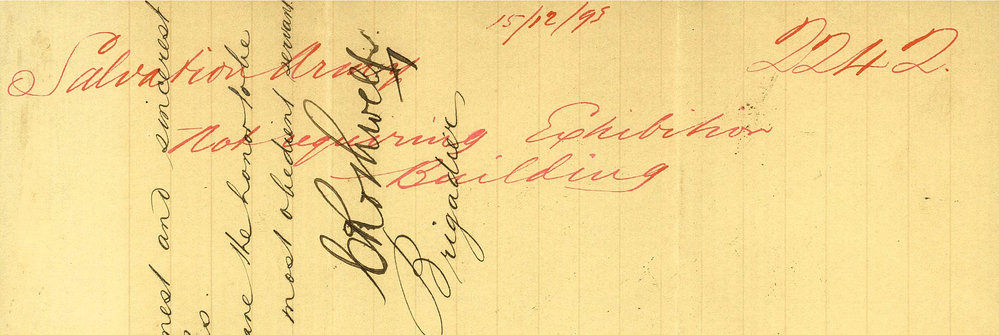 15/12/93
Salvation Army
2242.
Not requiring Exhibition
Building
nest and sincerest
s.
ave the honor to be
most obedient servant
Brigadier